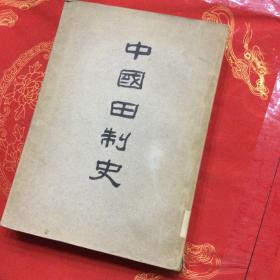 中國田制史